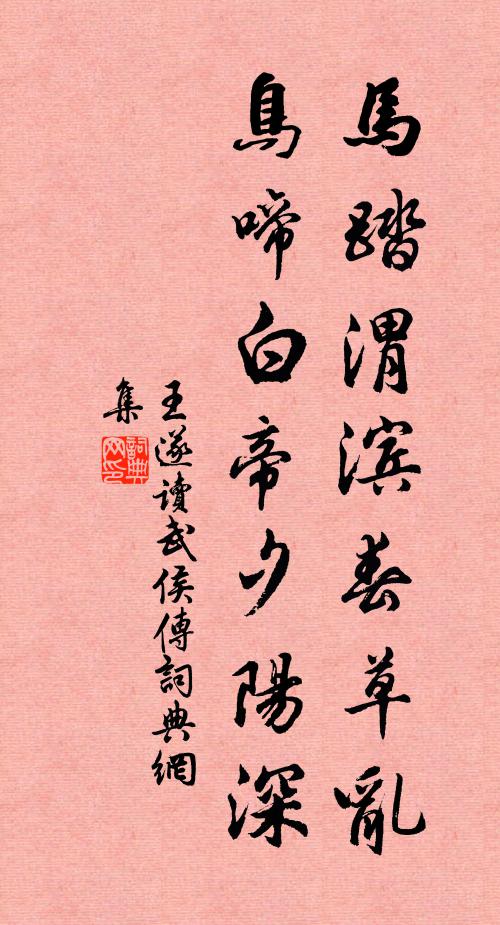 馬踏渭滨春草亂
鳥啼白帝夕陽深
王遂讀武侯傳詞典網
集
詞典
网印